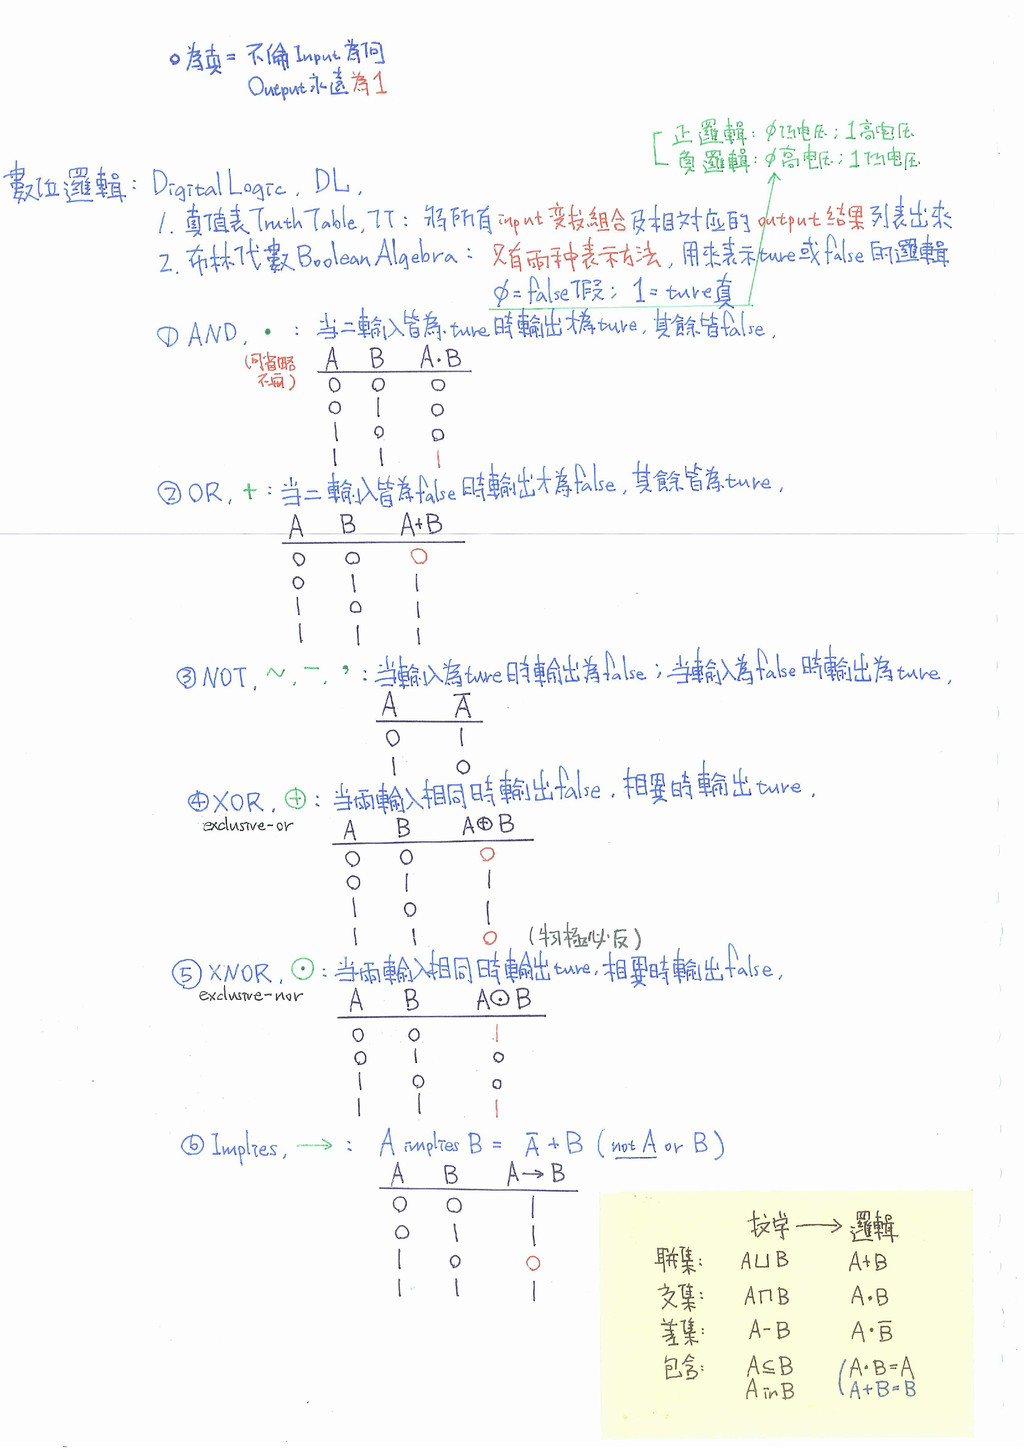 ○為真=不倫Input為何
Output永遠為1
正邏輯:0低电压;1高电压
負邏輯:0高电压;1低电压
數位邏輯:Digital Logic, DL,
1. 真值表Truth Table, TT: 將所有input变数組合及相对应的output結果列表出來
2. 布林代數Boolean Algebra: 只有兩种表示方法,用來表示ture或false的邏輯
0=false假; 1=ture真
① AND, •: 当二輸入皆為ture時輸出才為ture,其餘皆false,
(可省略
不寫)
A B A·B
0 0 0
0 1 0
1 0 0
1 1 1
② OR, +: 当二輸入皆為false時輸出才為false,其餘皆為ture,
A B A+B
0 0 0
0 1 1
1 0 1
1 1 1
③ NOT, ~, —, ’: 当輸入為ture時輸出為false;当輸入為false時輸出為ture,
A A̅
0 1
1 0
④ XOR, ⊕: 当兩輸入相同時輸出false,相異時輸出ture,
exclusive-or
A B A⊕B
0 0 0
0 1 1
1 0 1
1 1 0 (物極必反)
⑤ XNOR, ⊙: 当兩輸入相同時輸出ture,相異時輸出false,
exclusive-nor
A B A⊙B
0 0 1
0 1 0
1 0 0
1 1 1
⑥ Implies, →: A implies B = A̅+B (not A or B)
A B A→B
0 0 1
0 1 1
1 0 0
1 1 1
数学→邏輯
聯集: A⊔B A+B
交集: A⊓B A·B
差集: A-B A·B̅
包含: A⊆B (A·B=A
A in B A+B=B